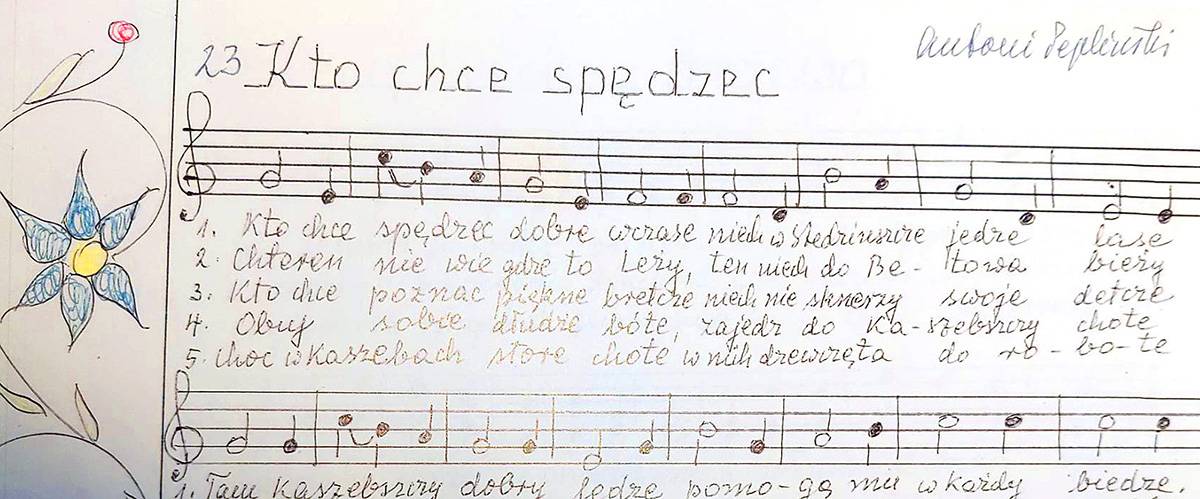 23 Kto chce spędzec
Antoni Pepliński
1. Kto chce spędzec dobre wczase niech w Stedzinszce jedze lase
2. Chteren nie wie gdze to Leży, ten niech do Be-towa bieży
3. Kto chce poznac piękne bretcze niech nie sknerzy swoje detcze
4. Obuj sobie dłudzie bóte, zajedz do Ka-szebszczy chote
5. choc w Kaszebach store chote w nich dzewczęta do ro-bo-te
1. Tam Kaszebszczy dobry ledze pomo-gą mu w każdy biedze.